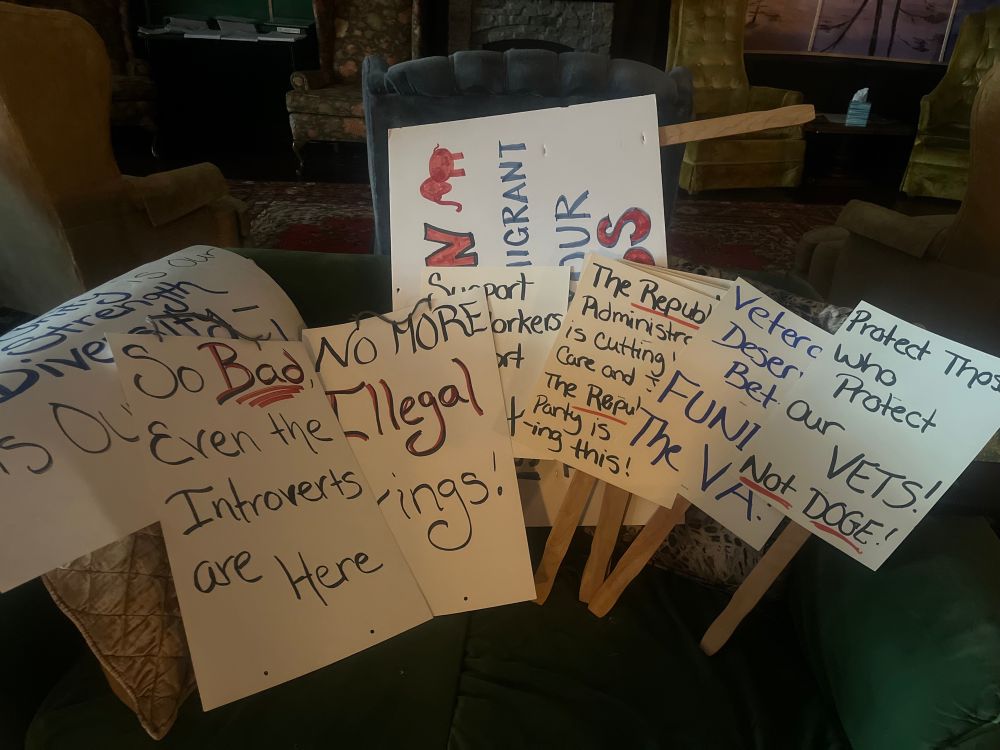 is Our
Strength
is Ou
So Bad,
Even the
Introverts
are Here
No MORE
Illegal
ings!
N
IGRANT
OUR
S
Support
orkers
ort
t
The Republ
Administra
is cutting
Care and
The Repu
Party is
-ing this!
Vetera
Deser
Bet
FUNI
The VA.
Protect Thos
who
Protect
our
VETS!
Not DOGE!